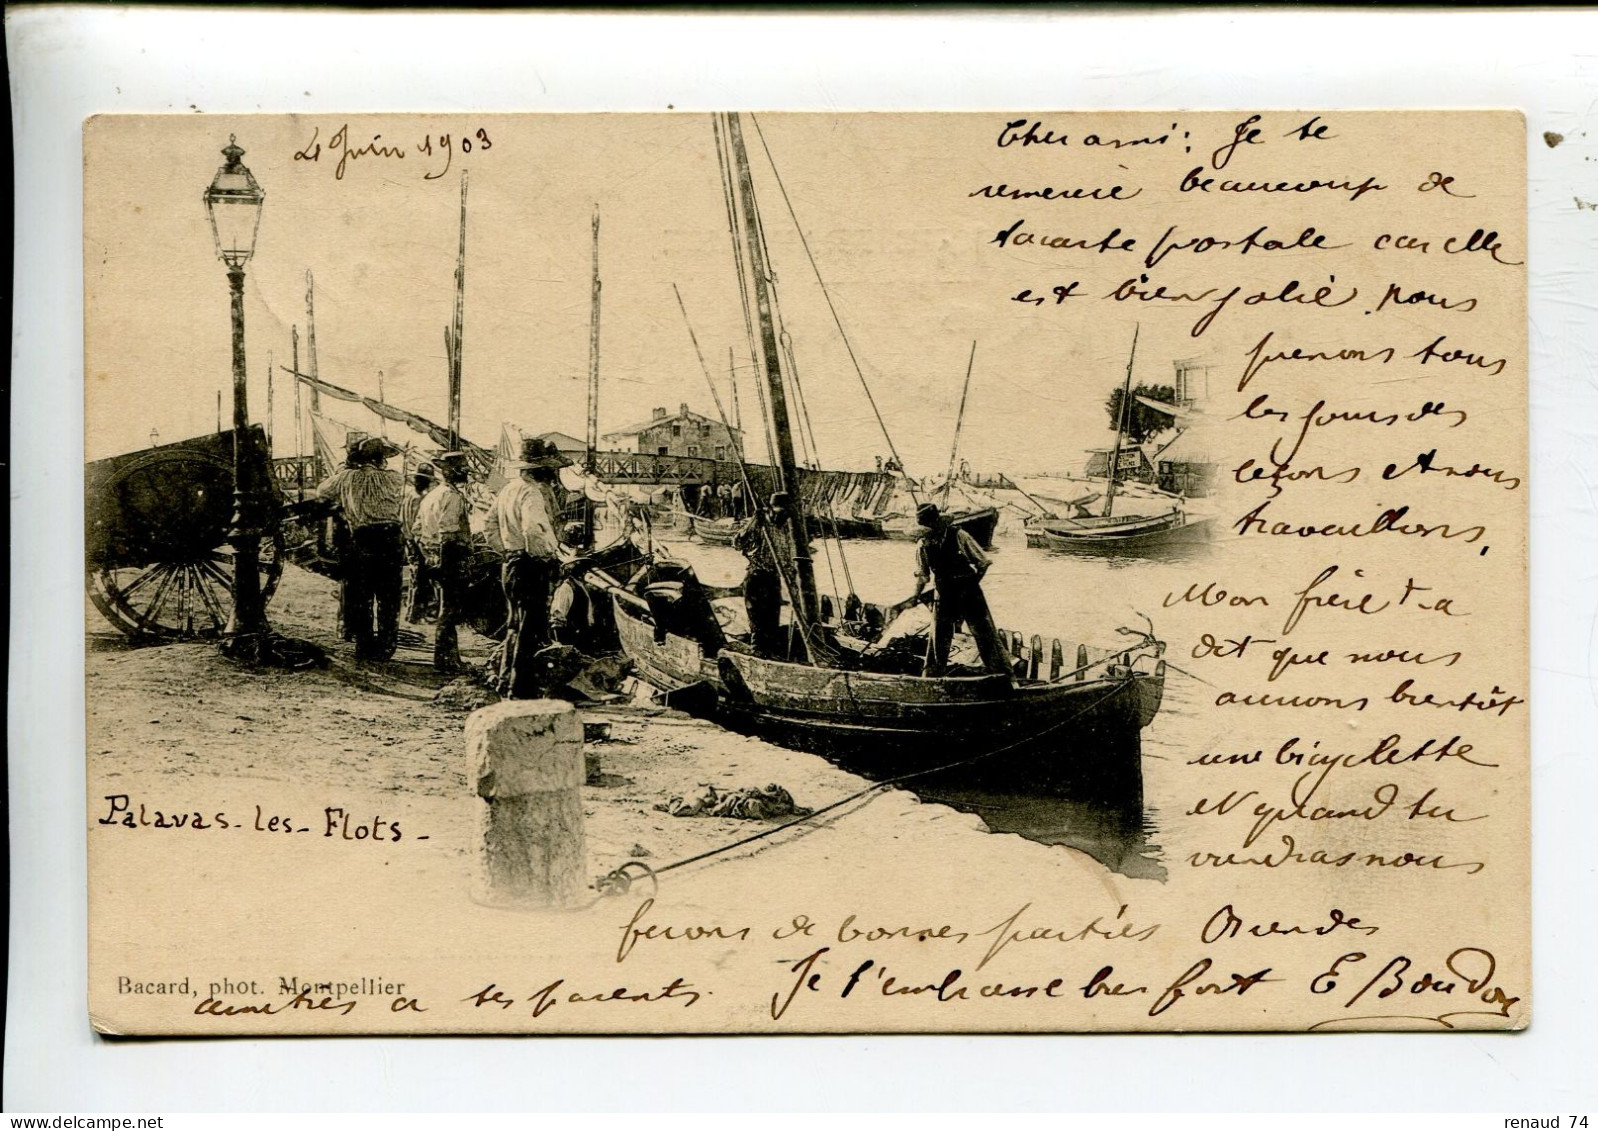 4 Juin 1903
Cher ami : Je te
remercie beaucoup de
ta carte postale car elle
est bien jolie. Nous
prenons tous
les jours des
leçons et nous
travaillons,
Mon frère t-a
dit que nous
aurions bientôt
une bicyclette
et quand tu
viendras nous
ferons de bonnes parties
amitiés a tes parents. Je t'embrasse bien fort E Boudon
Palavas-les-Flots-
Bacard, phot. Montpellier
renaud 74